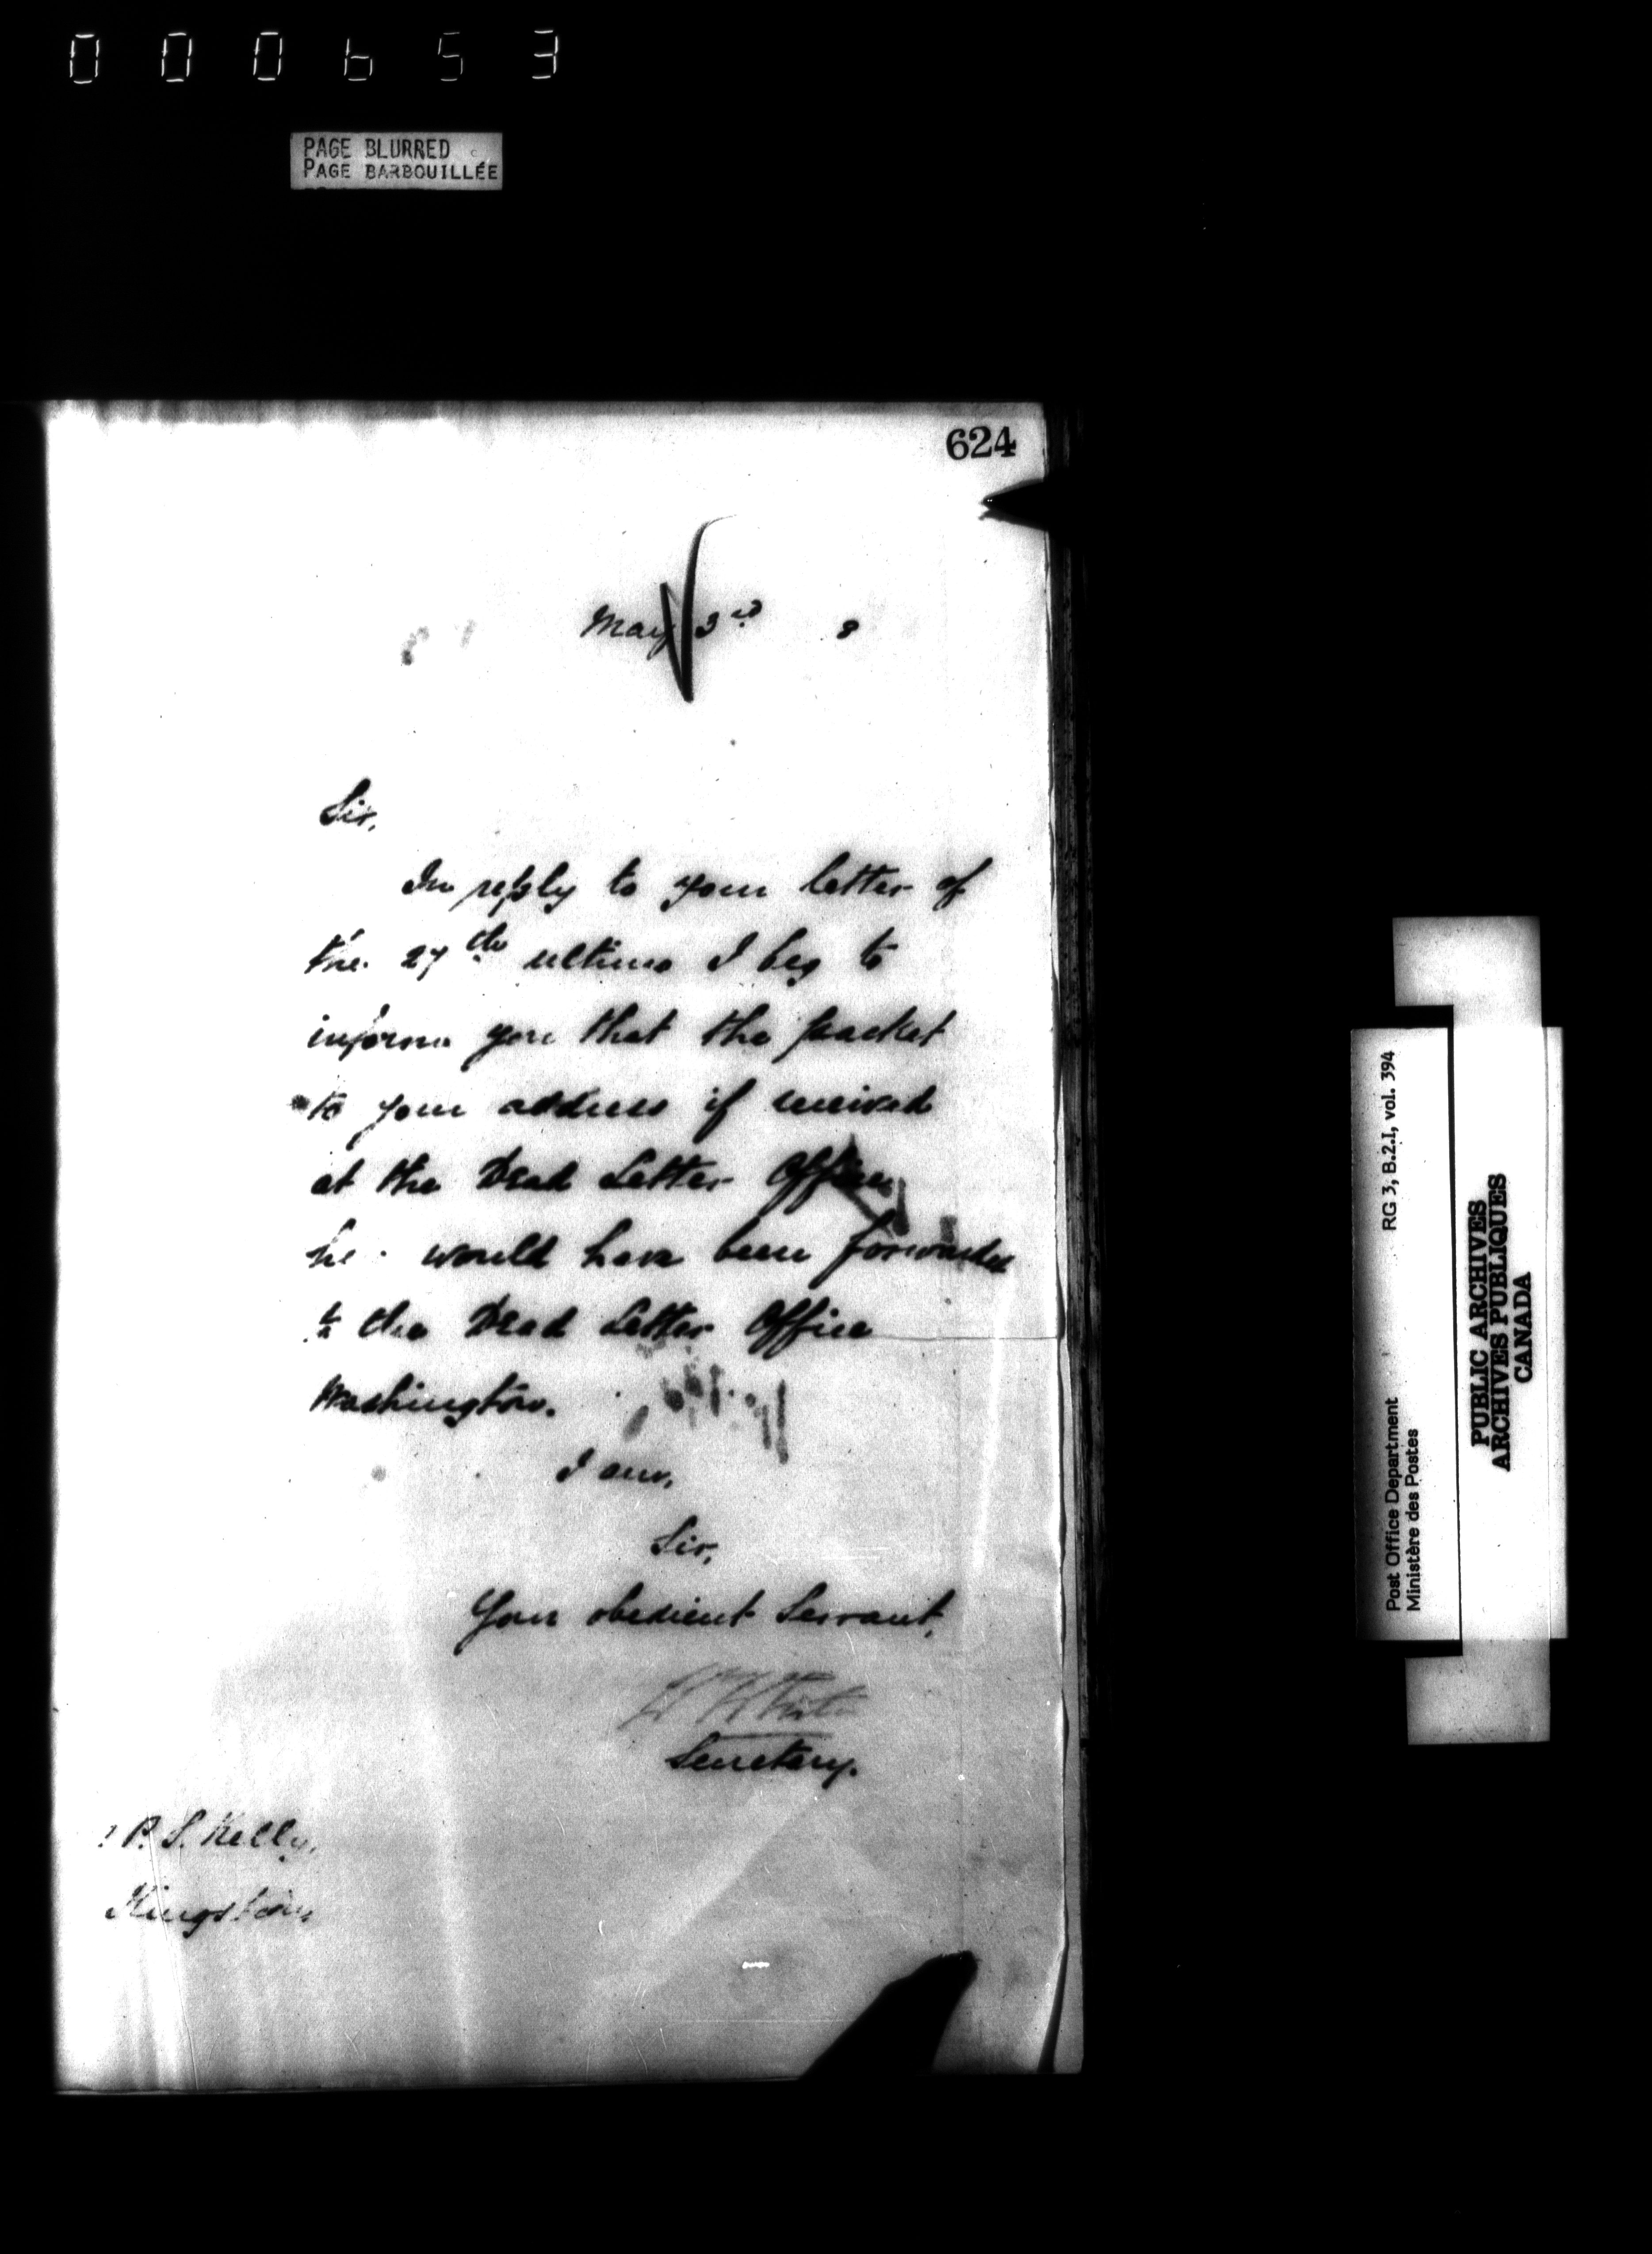 000653
PAGE BLURRED
PAGE BARBOUILLÉE
624
May 3rd 8
Sir,
In reply to your letter of
the 27th ultimo I beg to
inform you that the packet
to your address if received
at the Dead Letter Office
he would have been forwarded
to the Dead Letter Office
Washington.
I am,
Sir,
Your obedient Servant,
Secretary.
P. S. Kelly,
Kingston
RG 3, B.2.I, vol. 394
Post Office Department
Ministère des Postes
PUBLIC ARCHIVES
ARCHIVES PUBLIQUES
CANADA